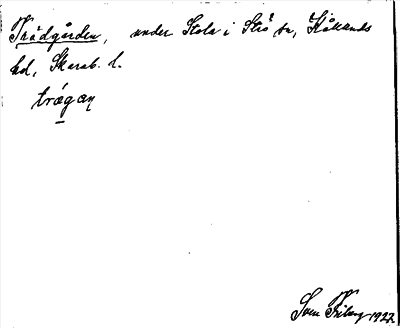 Trädgården, under Stola i Strö sn, Kållands
hd, Skarab. l.
trǻgan
Sven 1927